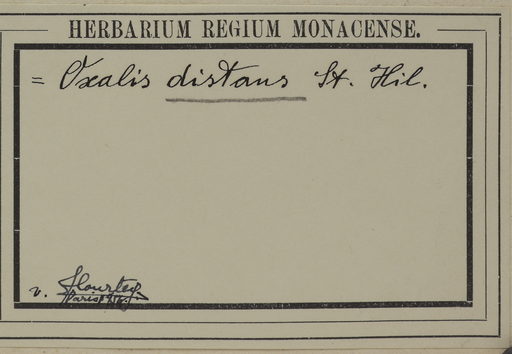 HERBARIUM REGIUM MONACENSE.
= Oxalis distans St. Hil.
v. Lourteig
Paris